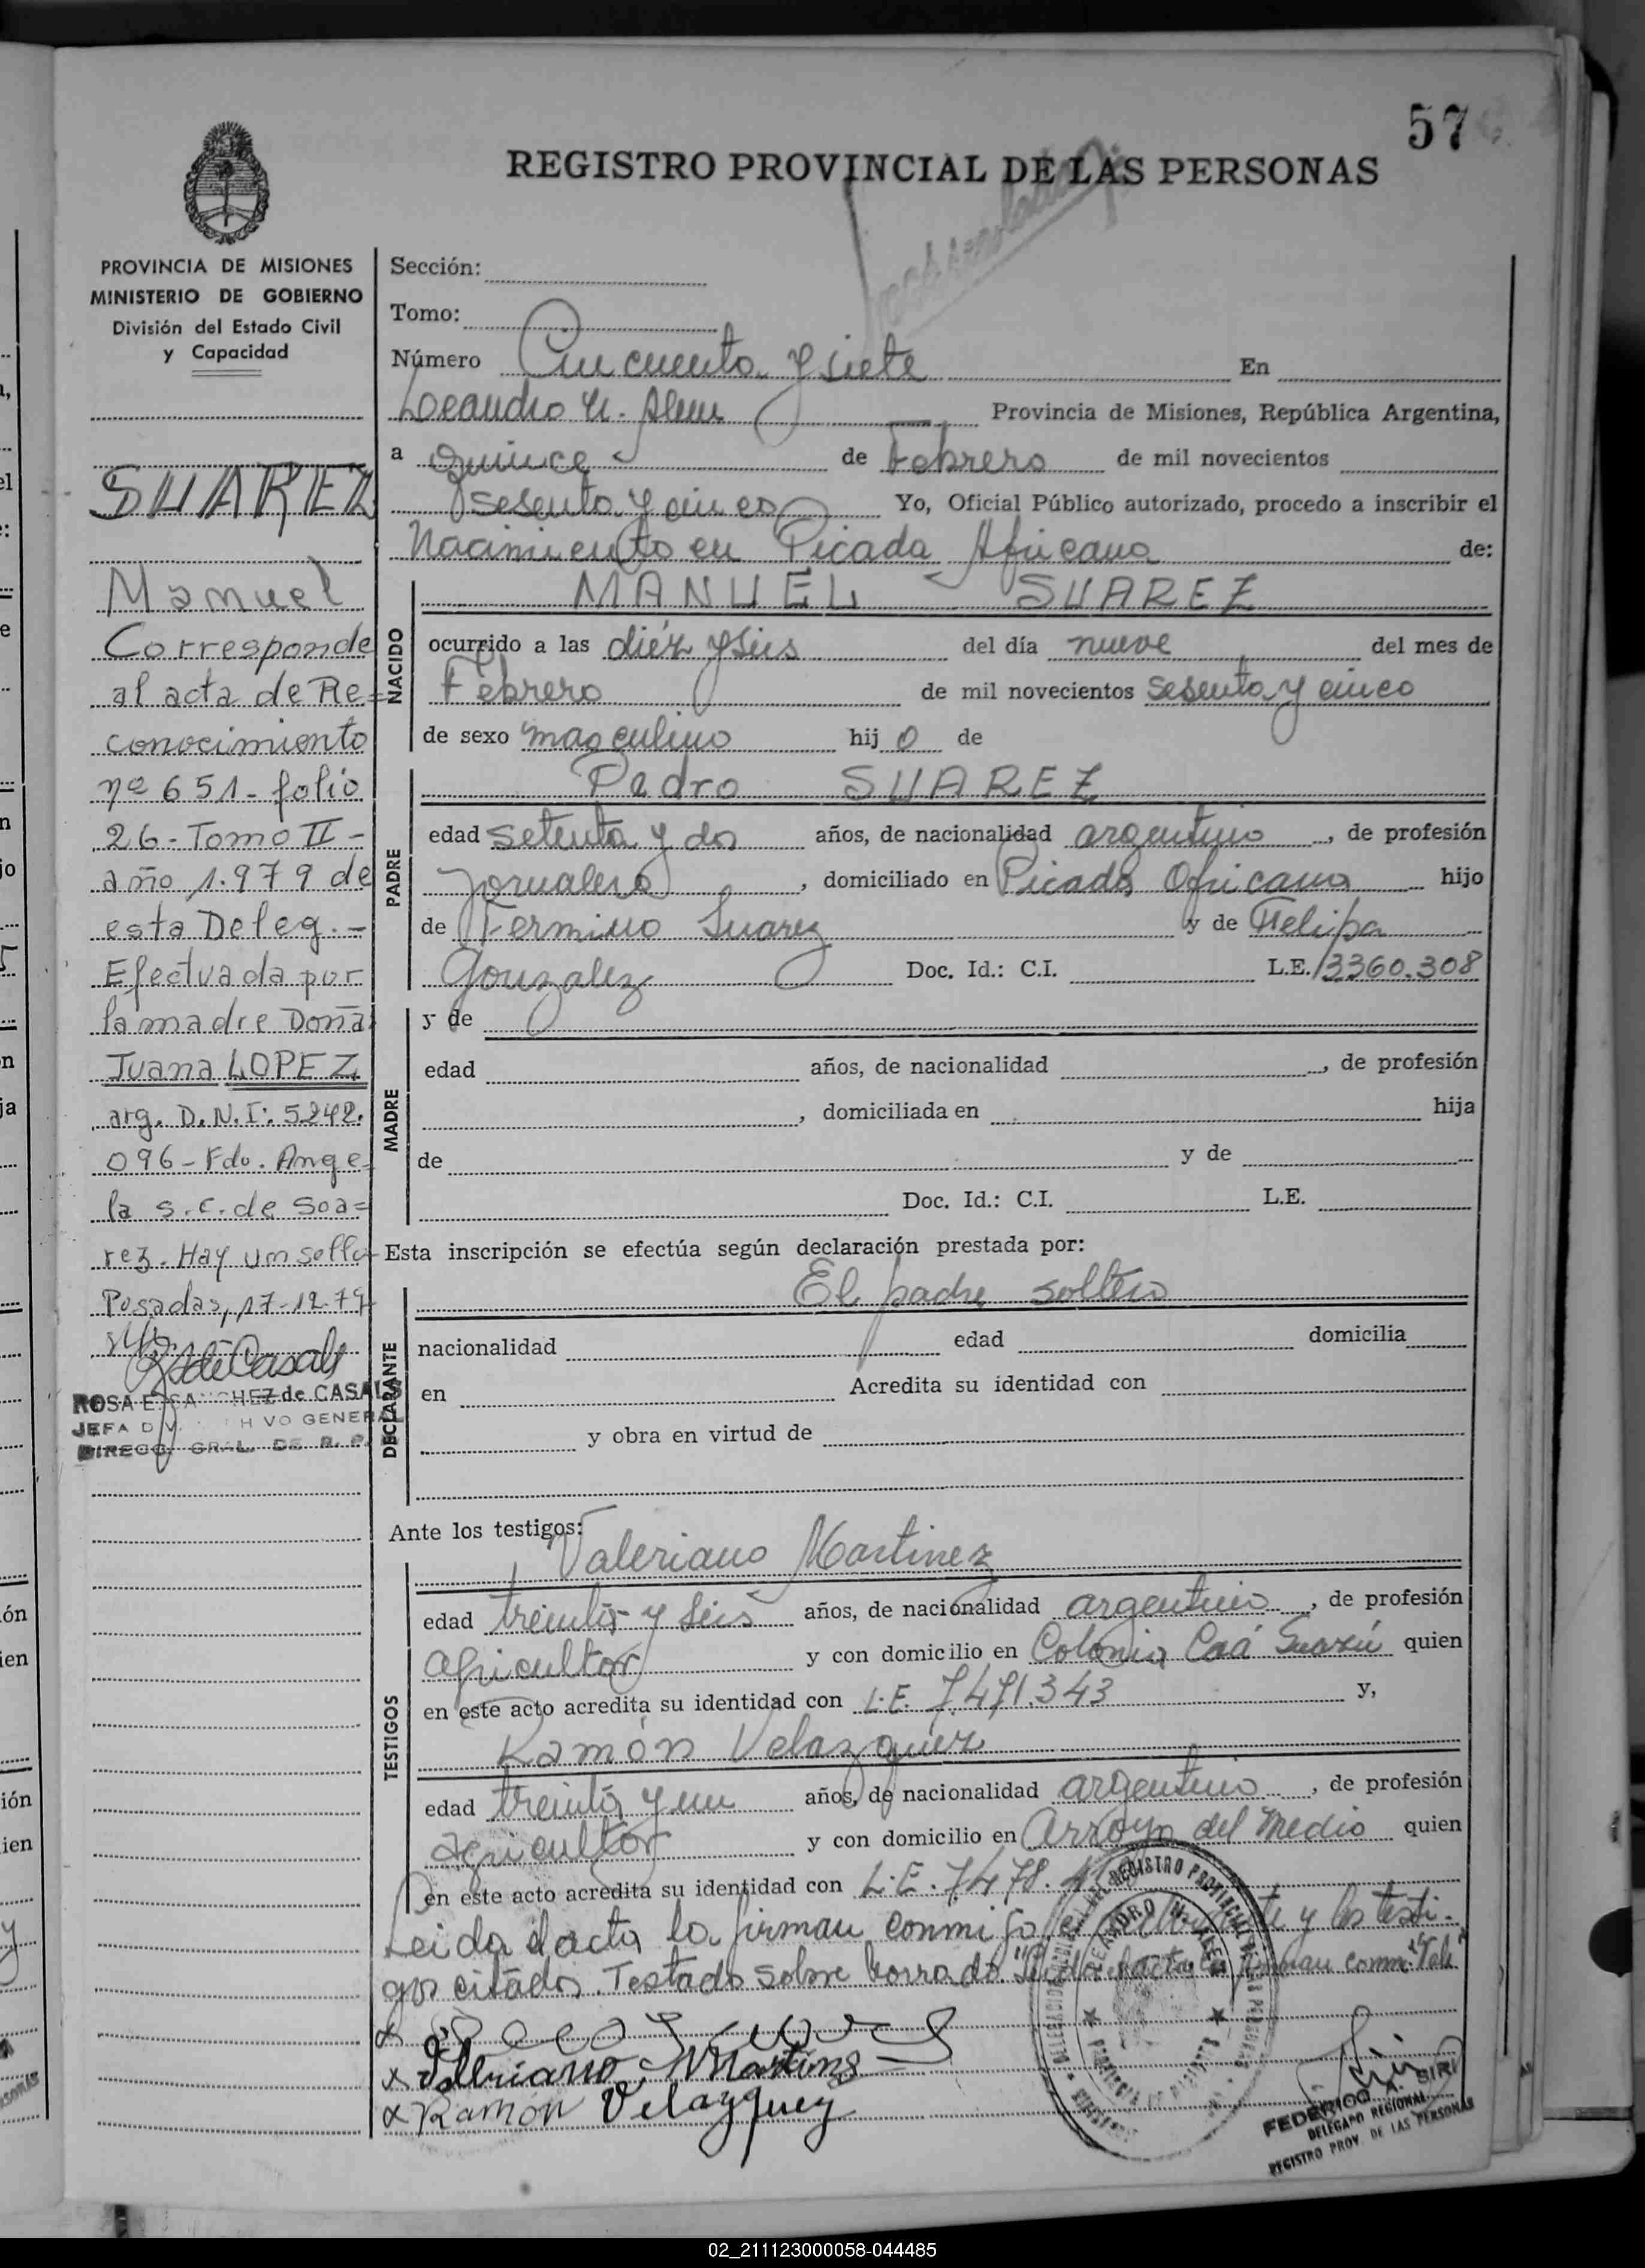 57
REGISTRO PROVINCIAL DE LAS PERSONAS
PROVINCIA DE MISIONES
MINISTERIO DE GOBIERNO
División del Estado Civil
y Capacidad
SUAREZ
Manuel
Corresponde
al acta de Re=
conocimiento
nº 651 - folio
26 - Tomo II -
año 1.979 de
esta Deleg. -
Efectuada por
la madre Doña
Juana LOPEZ
arg. D.N.I: 5242.
096 - Fdo. Ange=
la S.C. de Soa=
rez. Hay un sello
Posadas, 17-12-79
ROSA E. SANCHEZ de CASALS
JEFA DIV. GENERAL
DIRECC. GRAL. DE R. P.
Sección:
Tomo:
Número Cincuenta y siete En
Leandro N. Alem Provincia de Misiones, República Argentina,
a Quince de Febrero de mil novecientos
sesenta y cinco Yo, Oficial Público autorizado, procedo a inscribir el
Nacimiento en Picada Africana de:
NACIDO
MANUEL SUAREZ
ocurrido a las diéz y seis del día nueve del mes de
Febrero de mil novecientos sesenta y cinco
de sexo masculino hijo de
PADRE
Pedro SUAREZ
edad setenta y dos años, de nacionalidad argentino, de profesión
Jornalero, domiciliado en Picada Africana hijo
de Fermino Suarez y de Felipa
Gonzalez Doc. Id.: C.I. L.E. 3360.308
MADRE
y de
edad años, de nacionalidad , de profesión
, domiciliada en hija
de y de
Doc. Id.: C.I. L.E.
Esta inscripción se efectúa según declaración prestada por:
DECLARANTE
El padre soltero
nacionalidad edad domicilia
en Acredita su identidad con
y obra en virtud de
Ante los testigos:
TESTIGOS
Valeriano Martinez
edad treinta y seis años, de nacionalidad argentino, de profesión
agricultor y con domicilio en Colonia Caá Guazú quien
en este acto acredita su identidad con L.E. 7.471.343 y,
Ramón Velazquez
edad treinta y un años, de nacionalidad argentino, de profesión
agricultor y con domicilio en Arroyo del Medio quien
en este acto acredita su identidad con L.E. 7.478.
Leida el acta la firman conmigo el y los testi-
gos citados. Testado sobre borrado: "Leida el acta la firman conmi" Vale
Valeriano Martines
Ramon Velazquez
FEDERICO A. SIRI
DELEGADO REGIONAL
REGISTRO PROV. DE LAS PERSONAS
02_211123000058-044485